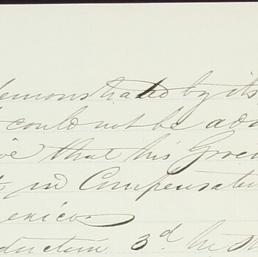 demonstrated by its
could not be adv
that his Gover
in Compensati
exico
duction 3d. Mr